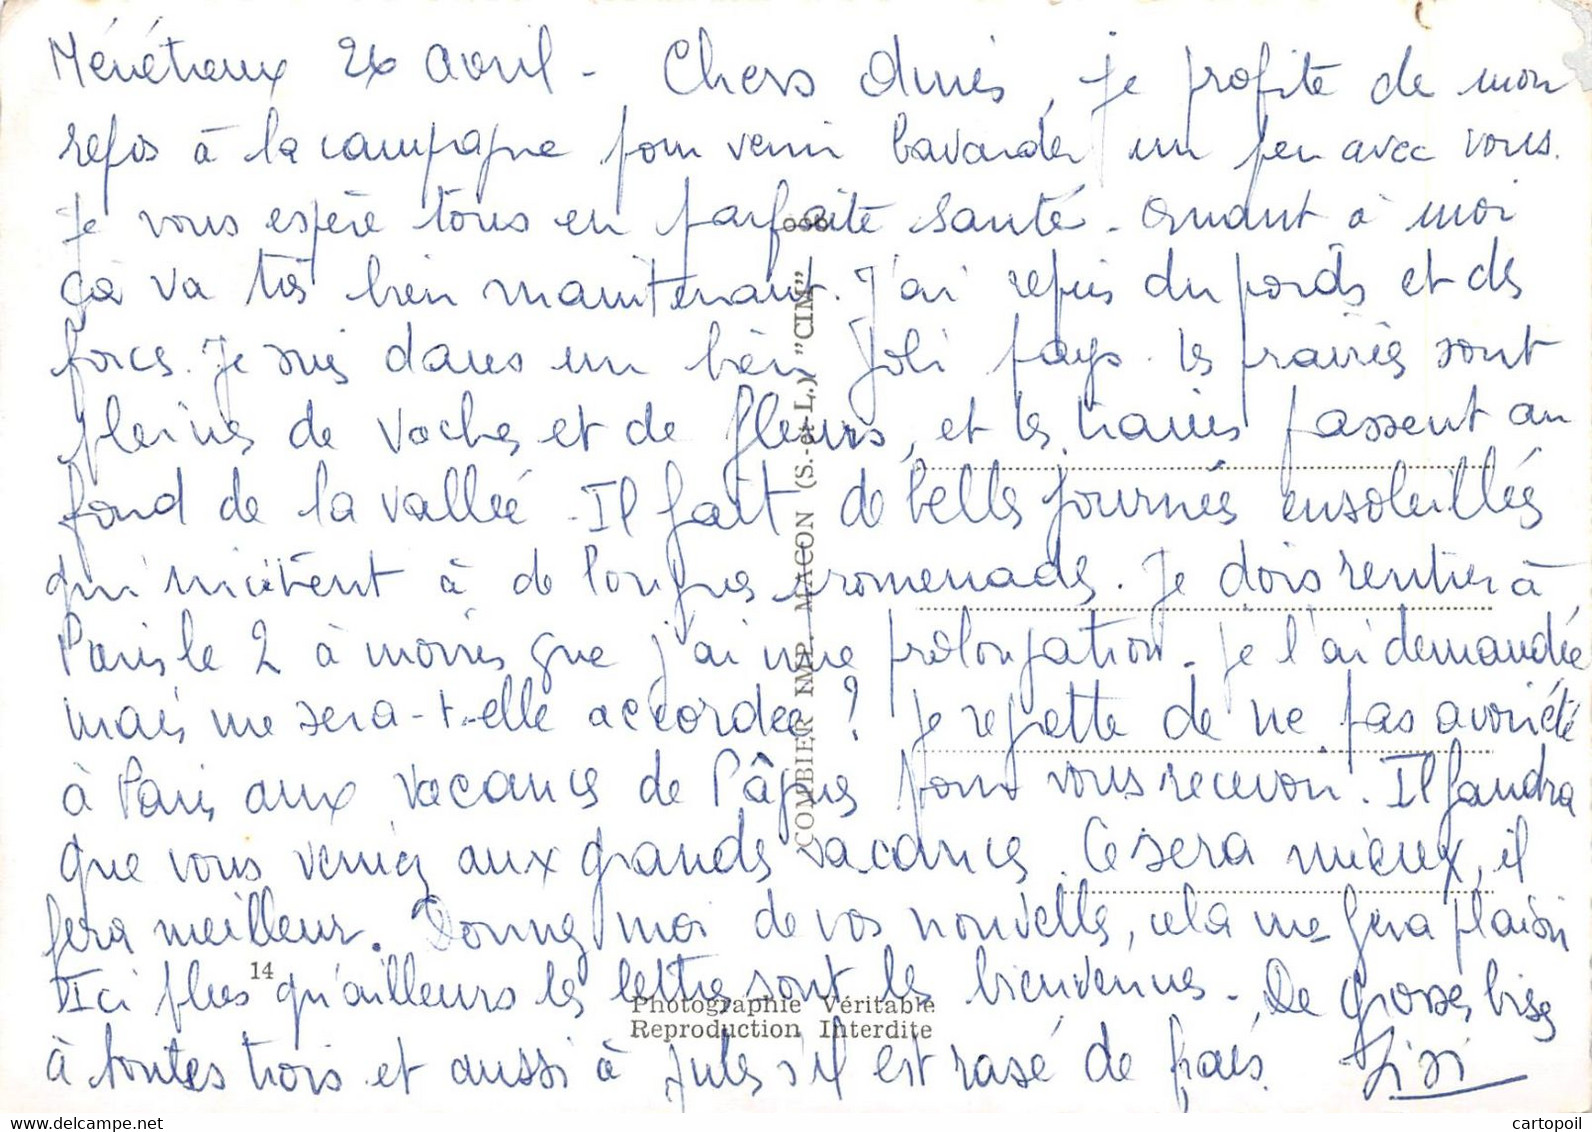 Ménétreux 26 avril - Chers Amies, je profite de mon
repos à la campagne pour venir bavarder un peu avec vous.
Je vous espère tous en parfaite santé - Quant à moi
ça va très bien maintenant. J'ai repris du poids et des
forces. Je suis dans un bien joli pays. les prairies sont
pleines de vaches et de fleurs, et les trains passent au
fond de la vallée - Il fait de belles journées ensoleillées
qui incitent à de longues promenades. Je dois rentrer à
Paris le 2 à moins que j'ai une prolongation - Je l'ai demandée
mais me sera-t-elle accordée ? Je regrette de ne pas avoir été
à Paris aux vacances de Pâques pour vous recevoir. Il faudra
que vous veniez aux grandes vacances. Ce sera mieux, il
fera meilleur. Donnez moi de vos nouvelles, cela me fera plaisir
Ici plus qu'ailleurs les lettres sont les bienvenues - De grosses bises
à toutes trois et aussi à Jules s'il est rasé de frais. Zizi
COMBIER IMP. MACON (S.-et-L.) "CIM"
14
Photographie Véritable
Reproduction Interdite
cartopoil